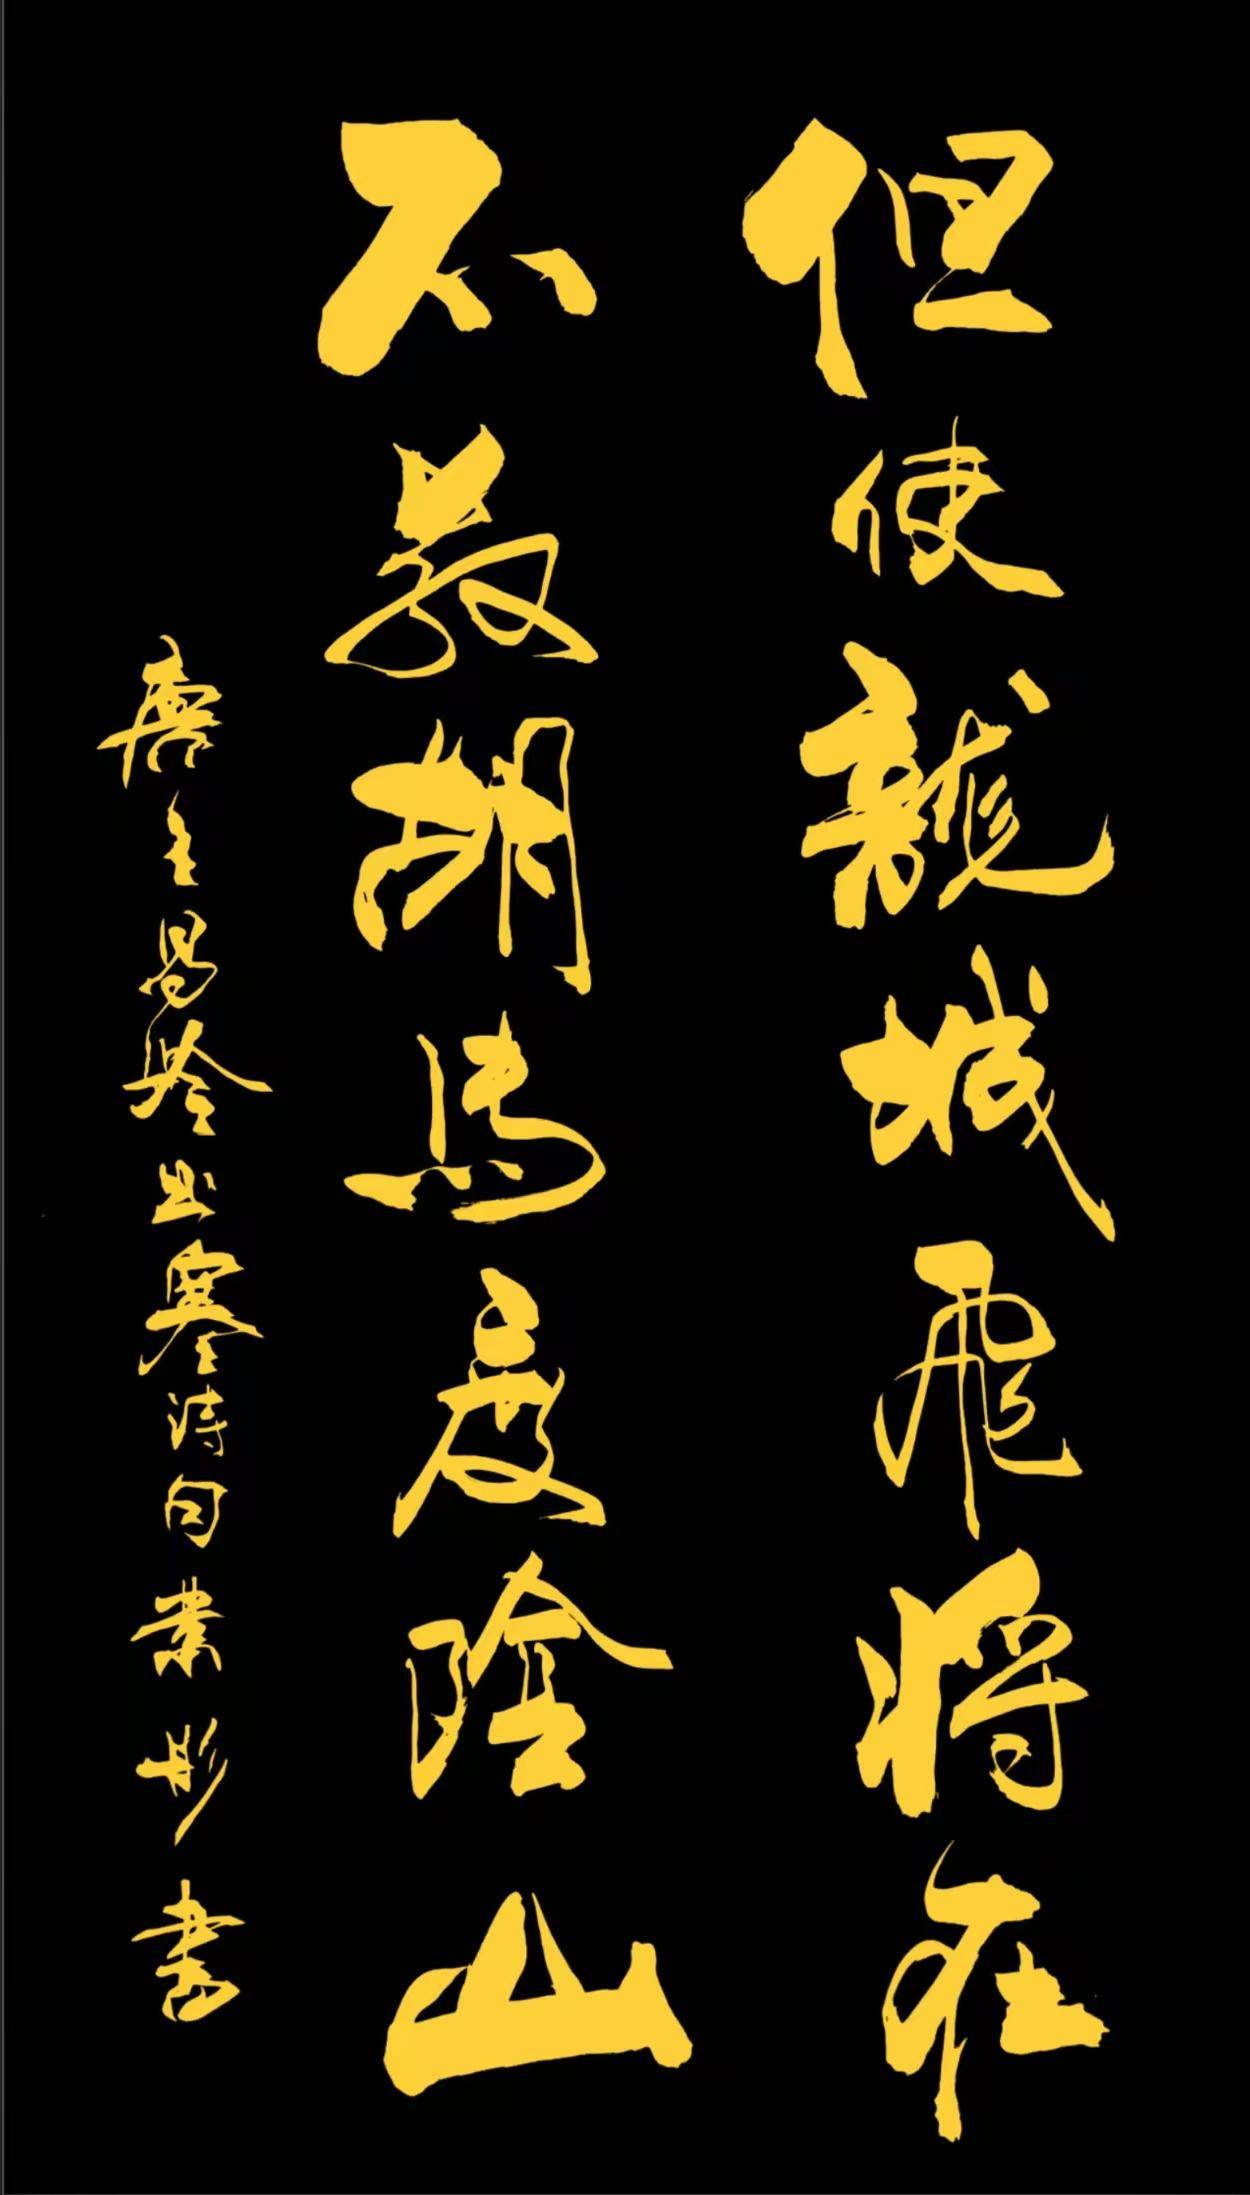 但使龍城飛將在
不教胡馬度陰山
唐王昌齡出塞詩句業彤書